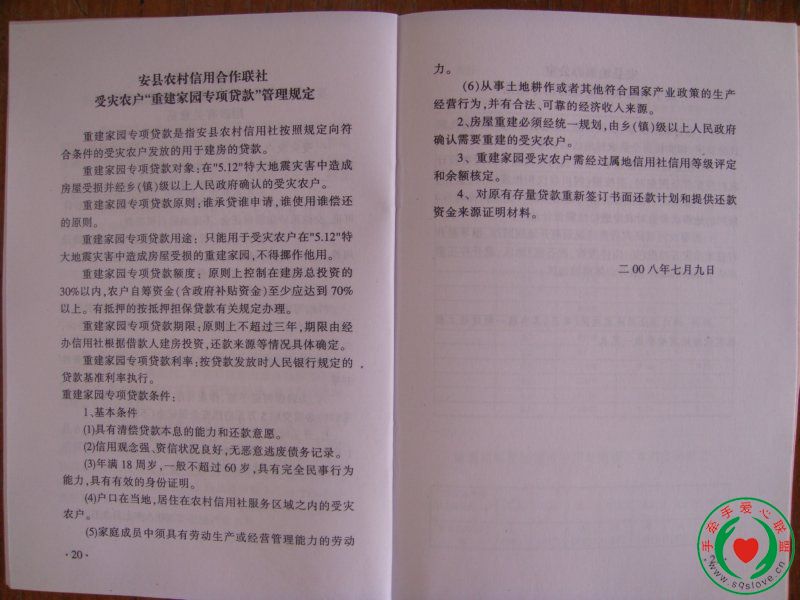 安县农村信用合作联社
受灾农户"重建家园专项贷款"管理规定
重建家园专项贷款是指安县农村信用社按照规定向符
合条件的受灾农户发放的用于建房的贷款。
重建家园专项贷款对象：在"5.12"特大地震灾害中造成
房屋受损并经乡(镇)级以上人民政府确认的受灾农户。
重建家园专项贷款原则：谁承贷谁申请，谁使用谁偿还
的原则。
重建家园专项贷款用途：只能用于受灾农户在"5.12"特
大地震灾害中造成房屋受损的重建家园，不得挪作他用。
重建家园专项贷款额度：原则上控制在建房总投资的
30%以内，农户自筹资金(含政府补贴资金)至少应达到70%
以上。有抵押的按抵押担保贷款有关规定办理。
重建家园专项贷款期限：原则上不超过三年，期限由经
办信用社根据借款人建房投资，还款来源等情况具体确定。
重建家园专项贷款利率：按贷款发放时人民银行规定的
贷款基准利率执行。
重建家园专项贷款条件：
1、基本条件
(1)具有清偿贷款本息的能力和还款意愿。
(2)信用观念强、资信状况良好，无恶意逃废债务记录。
(3)年满18周岁，一般不超过60岁，具有完全民事行为
能力，具有有效的身份证明。
(4)户口在当地，居住在农村信用社服务区域之内的受灾
农户。
(5)家庭成员中须具有劳动生产或经营管理能力的劳动
·20·
力。
(6)从事土地耕作或者其他符合国家产业政策的生产
经营行为，并有合法、可靠的经济收入来源。
2、房屋重建必须经统一规划，由乡(镇)级以上人民政府
确认需要重建的受灾农户。
3、重建家园受灾农户需经过属地信用社信用等级评定
和余额核定。
4、对原有存量贷款重新签订书面还款计划和提供还款
资金来源证明材料。
二00八年七月九日
手牵手爱心联盟
www.sqslove.cn